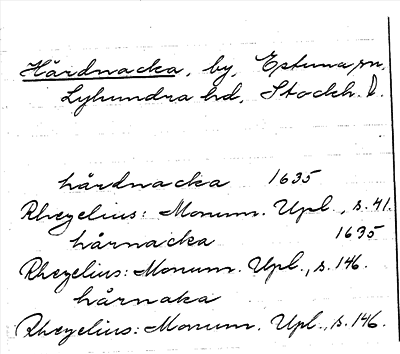 Hårdnacka, by, Estuna sn.
Lyhundra hd, Stockh. l.
hårdnacka 1635
Rhezelius: Monum. Upl., s. 41.
hårnacka 1635
Rhezelius: Monum. Upl., s. 146.
hårnaka
Rhezelius: Monum. Upl., s. 146.